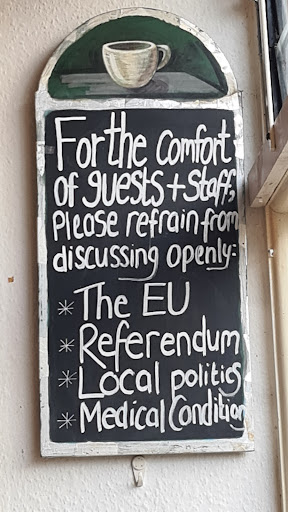 For the Comfort
of guests + Staff,
Please refrain from
discussing openly:-
* The EU
* Referendum
* Local politics
* Medical Condition